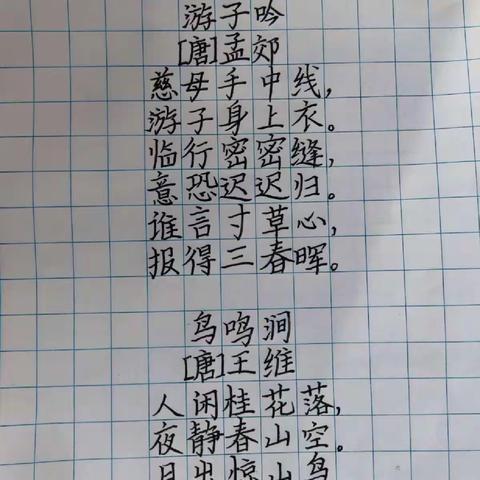 游子吟
[唐]孟郊
慈母手中线,
游子身上衣。
临行密密缝,
意恐迟迟归。
谁言寸草心,
报得三春晖。
鸟鸣涧
[唐]王维
人闲桂花落,
夜静春山空。
月出惊山鸟